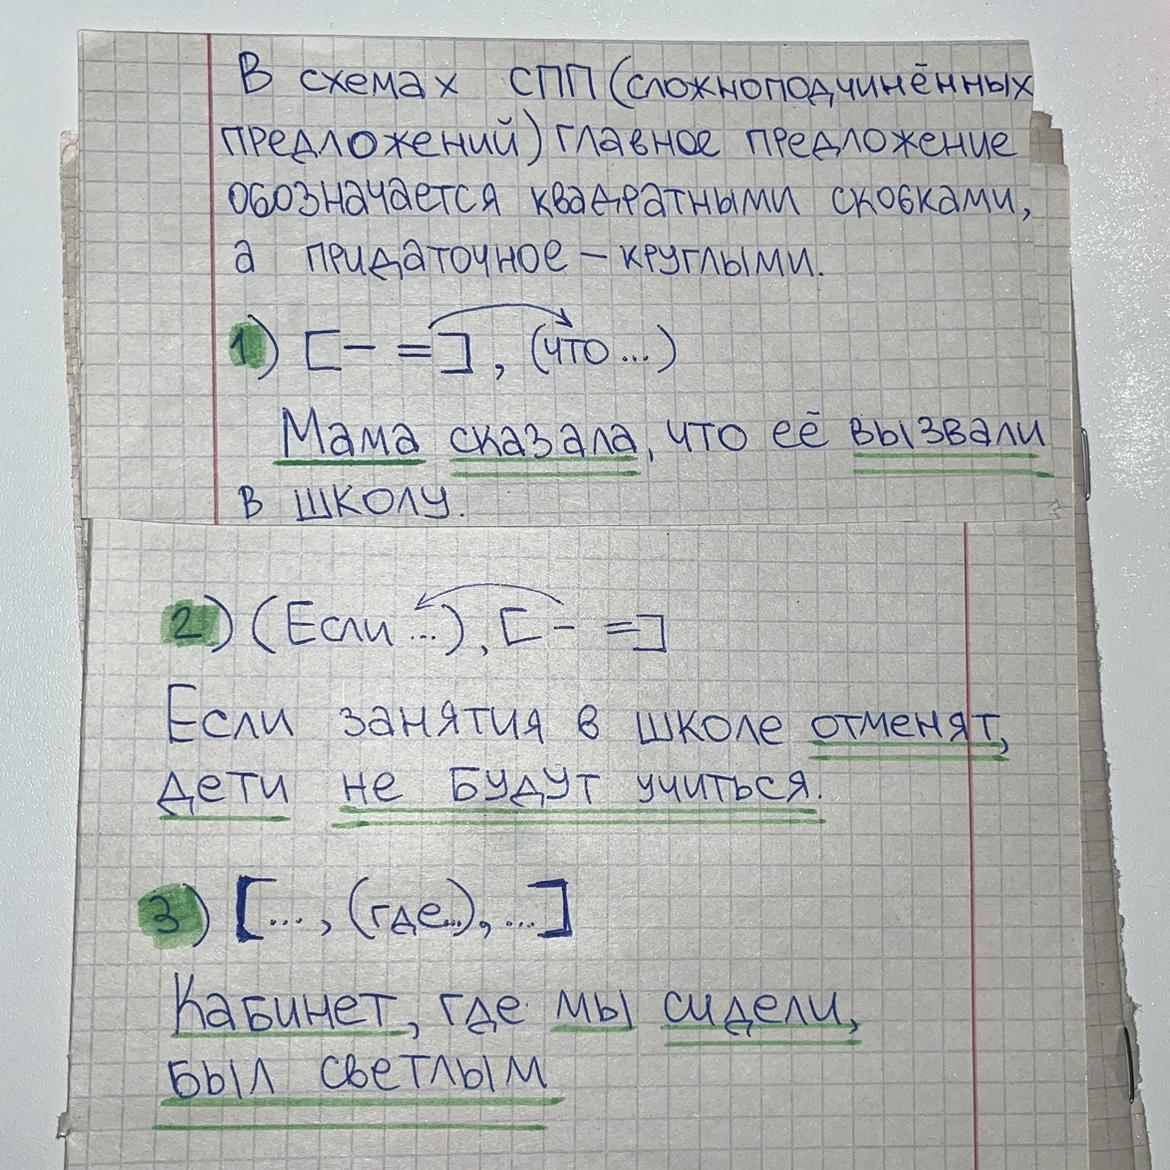 В схемах СПП (сложноподчинённых
предложений) главное предложение
обозначается квадратными скобками,
а придаточное – круглыми.
1) [– =], (что...)
Мама сказала, что её вызвали
в школу.
2) (Если...), [– =]
Если занятия в школе отменят,
дети не будут учиться.
3) [..., (где...), ...]
Кабинет, где мы сидели,
был светлым